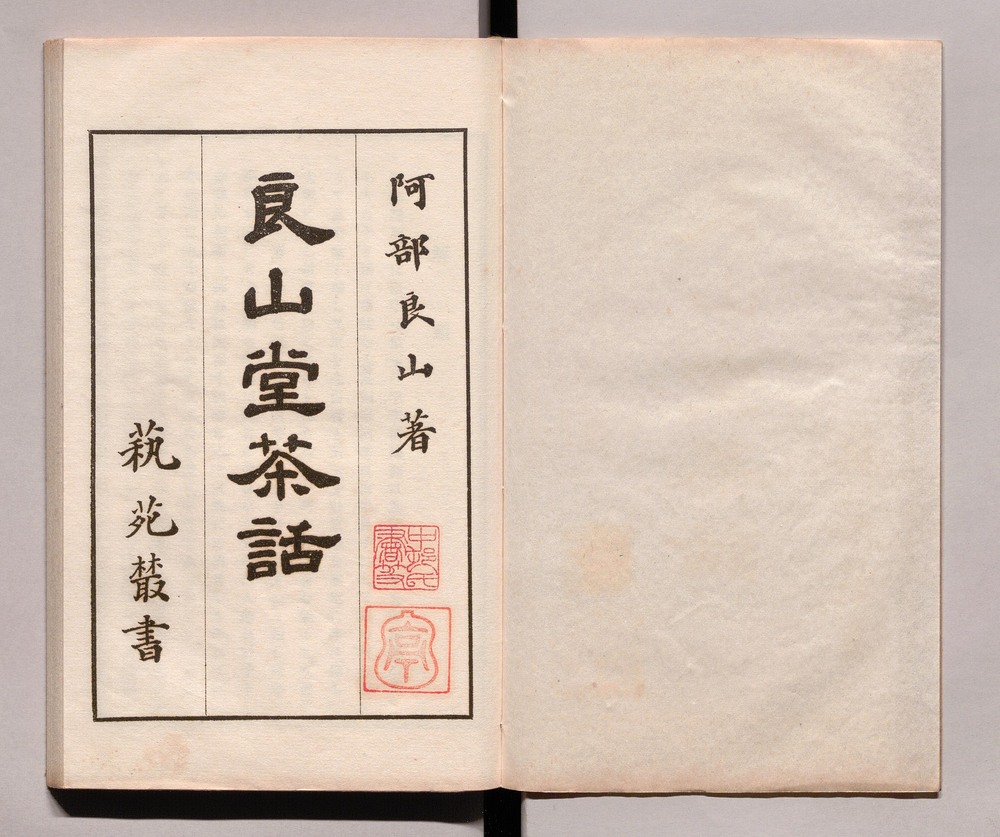 阿部良山著
良山堂茶話
蓺苑叢書